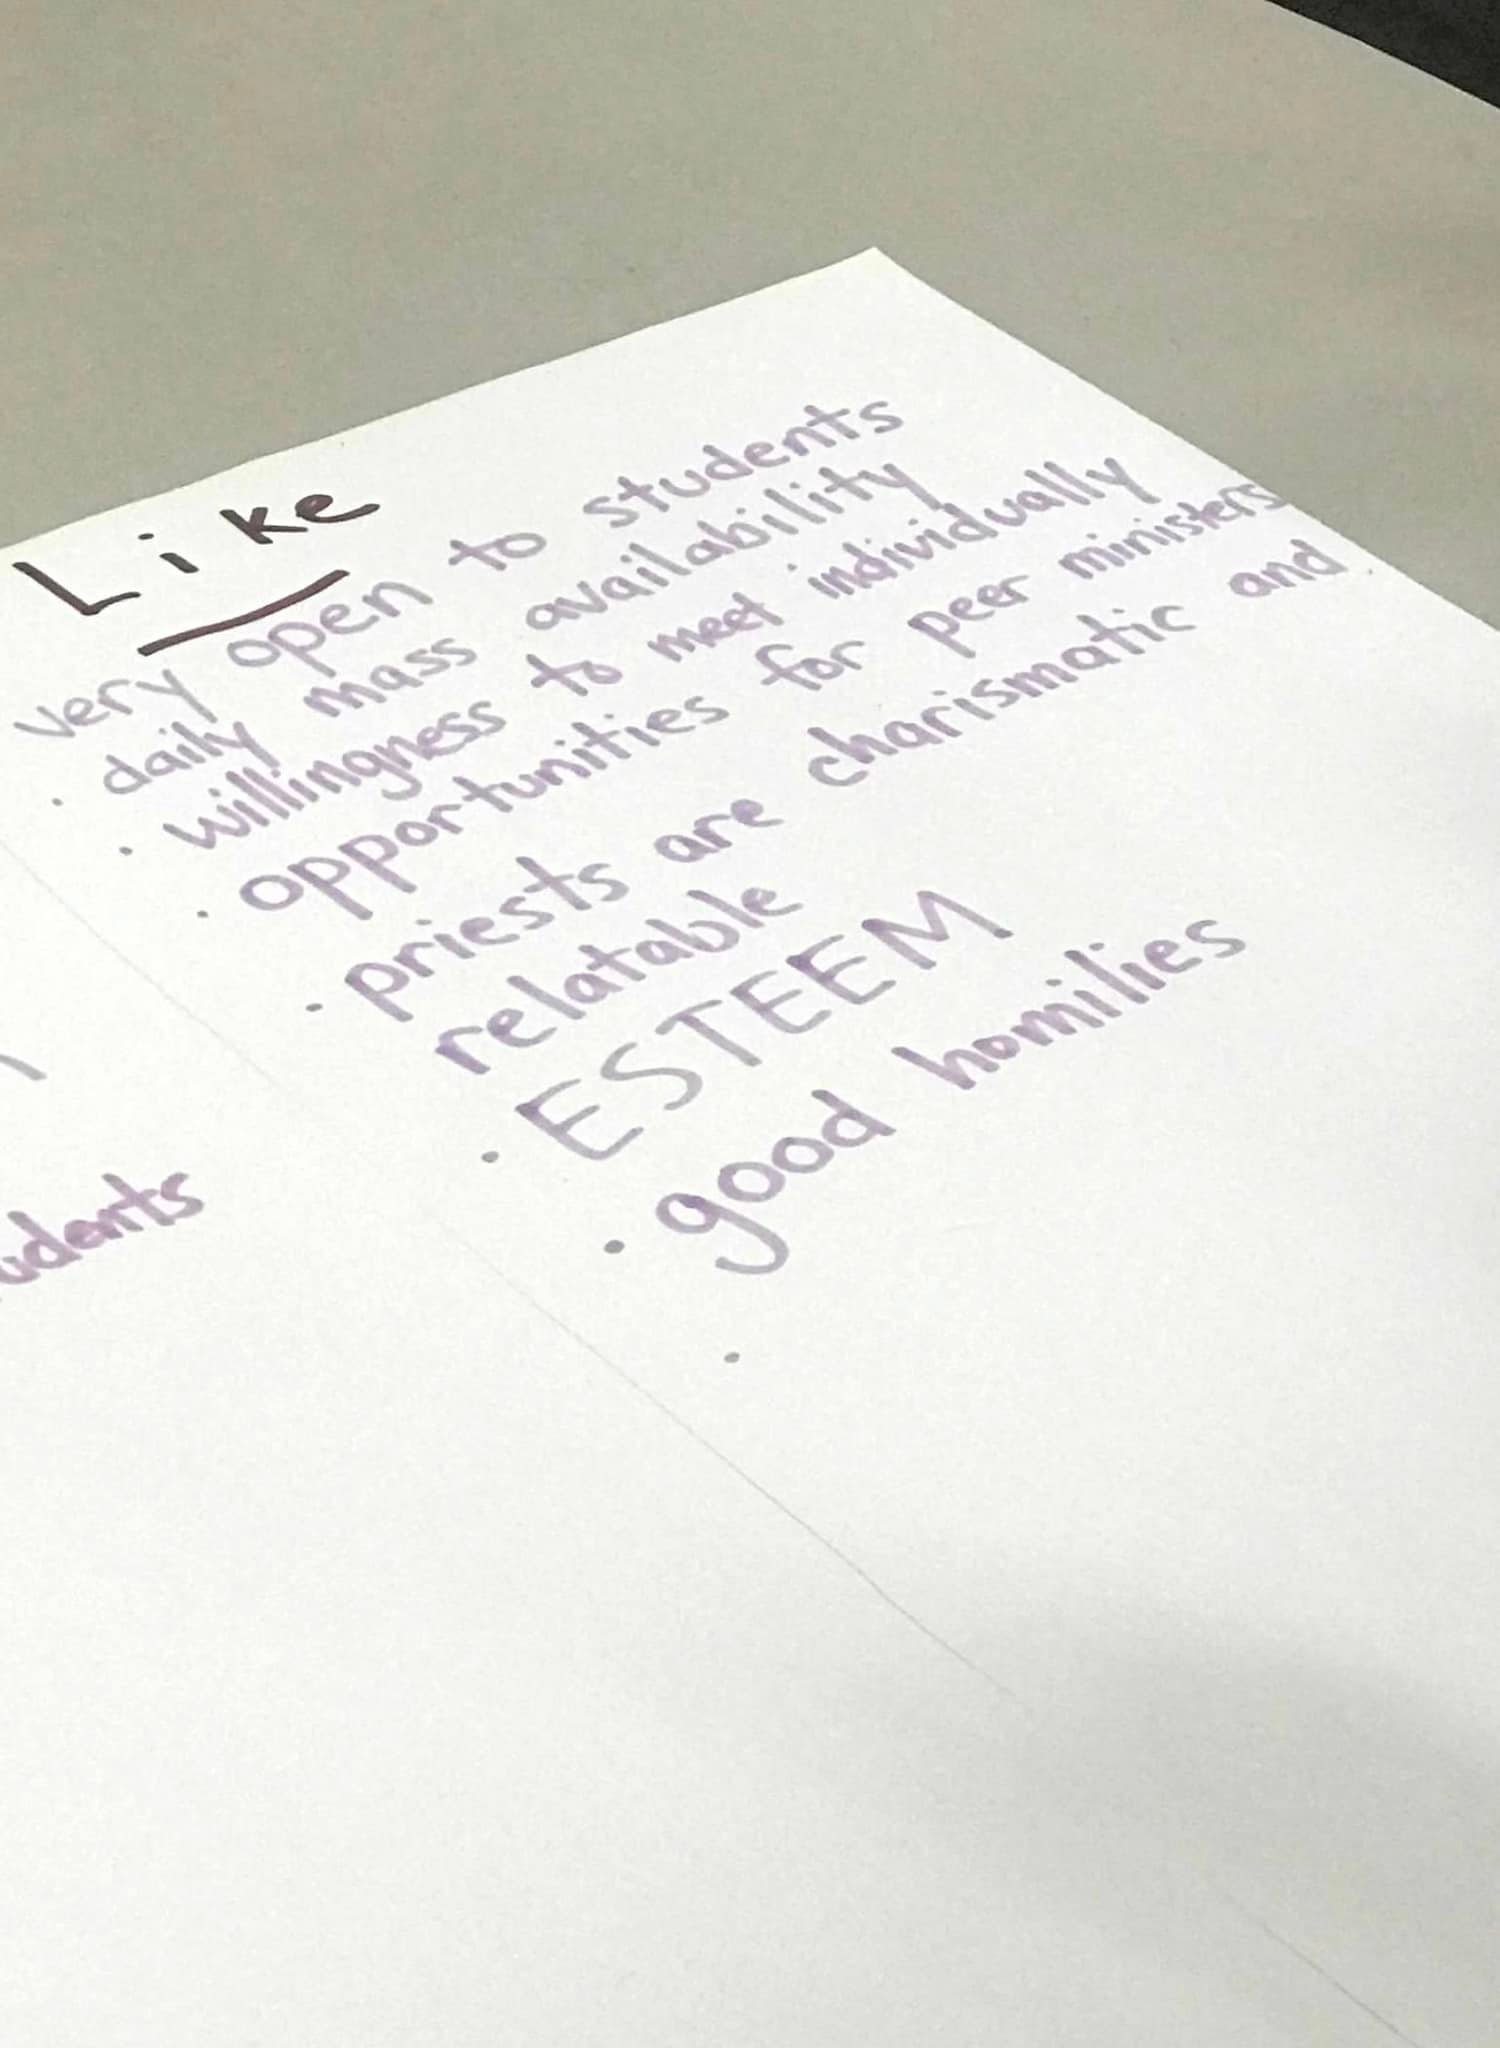 Like
very open to students
· daily mass availability
· willingness to meet individually
· opportunities for peer ministers
· priests are charismatic and
relatable
· ESTEEM
· good homilies
·